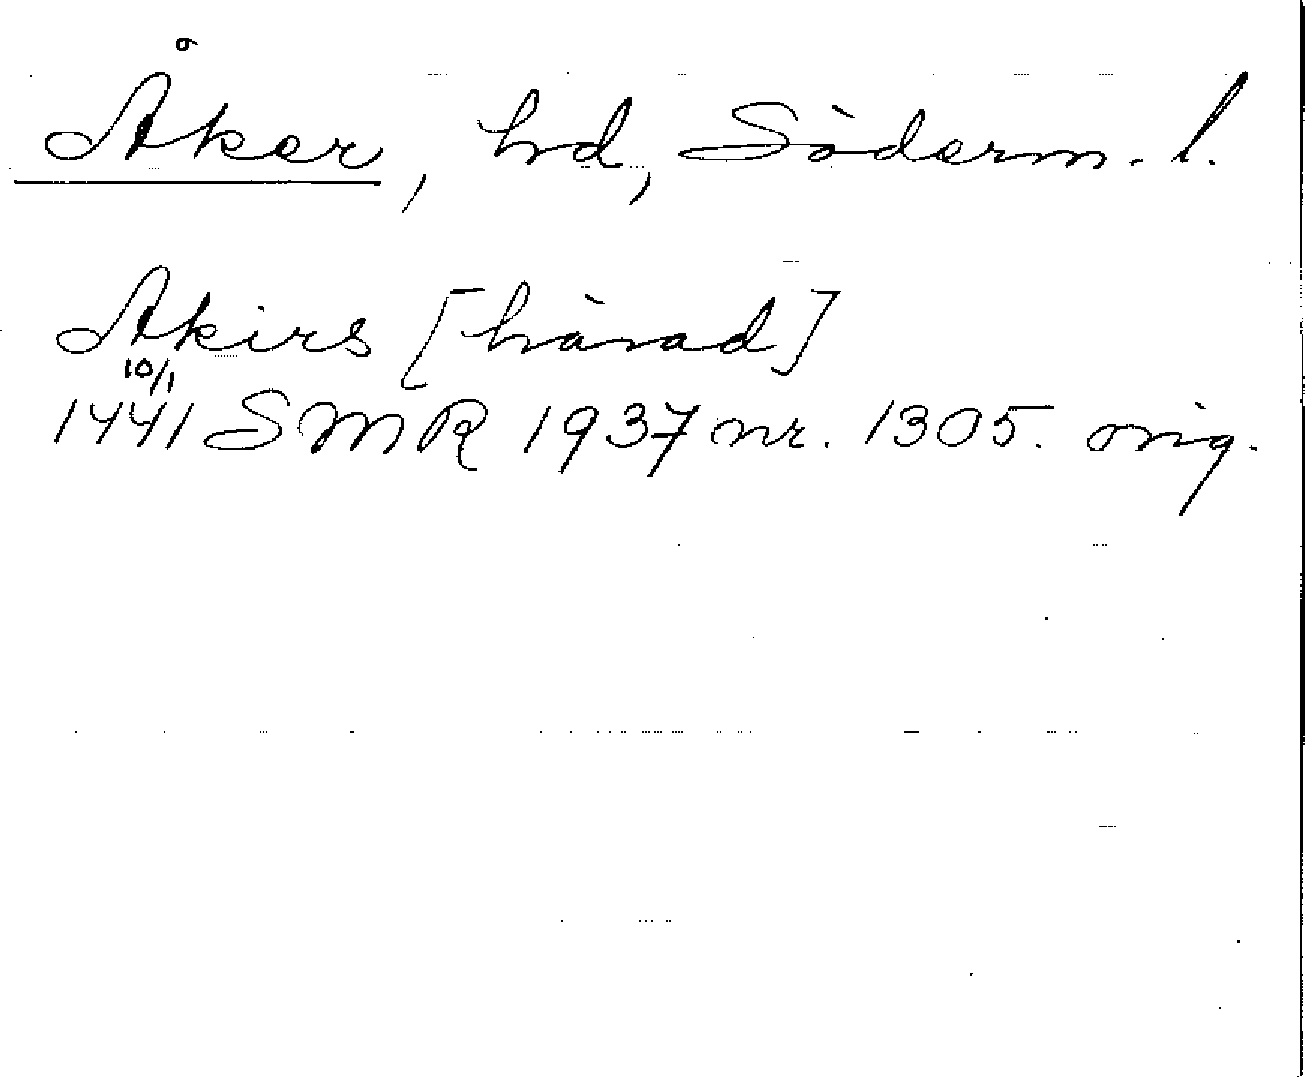 Åker, hd, Söderm. l.
Akirs [härad]
10/1
1441 SMR 1937 nr. 1305. orig.